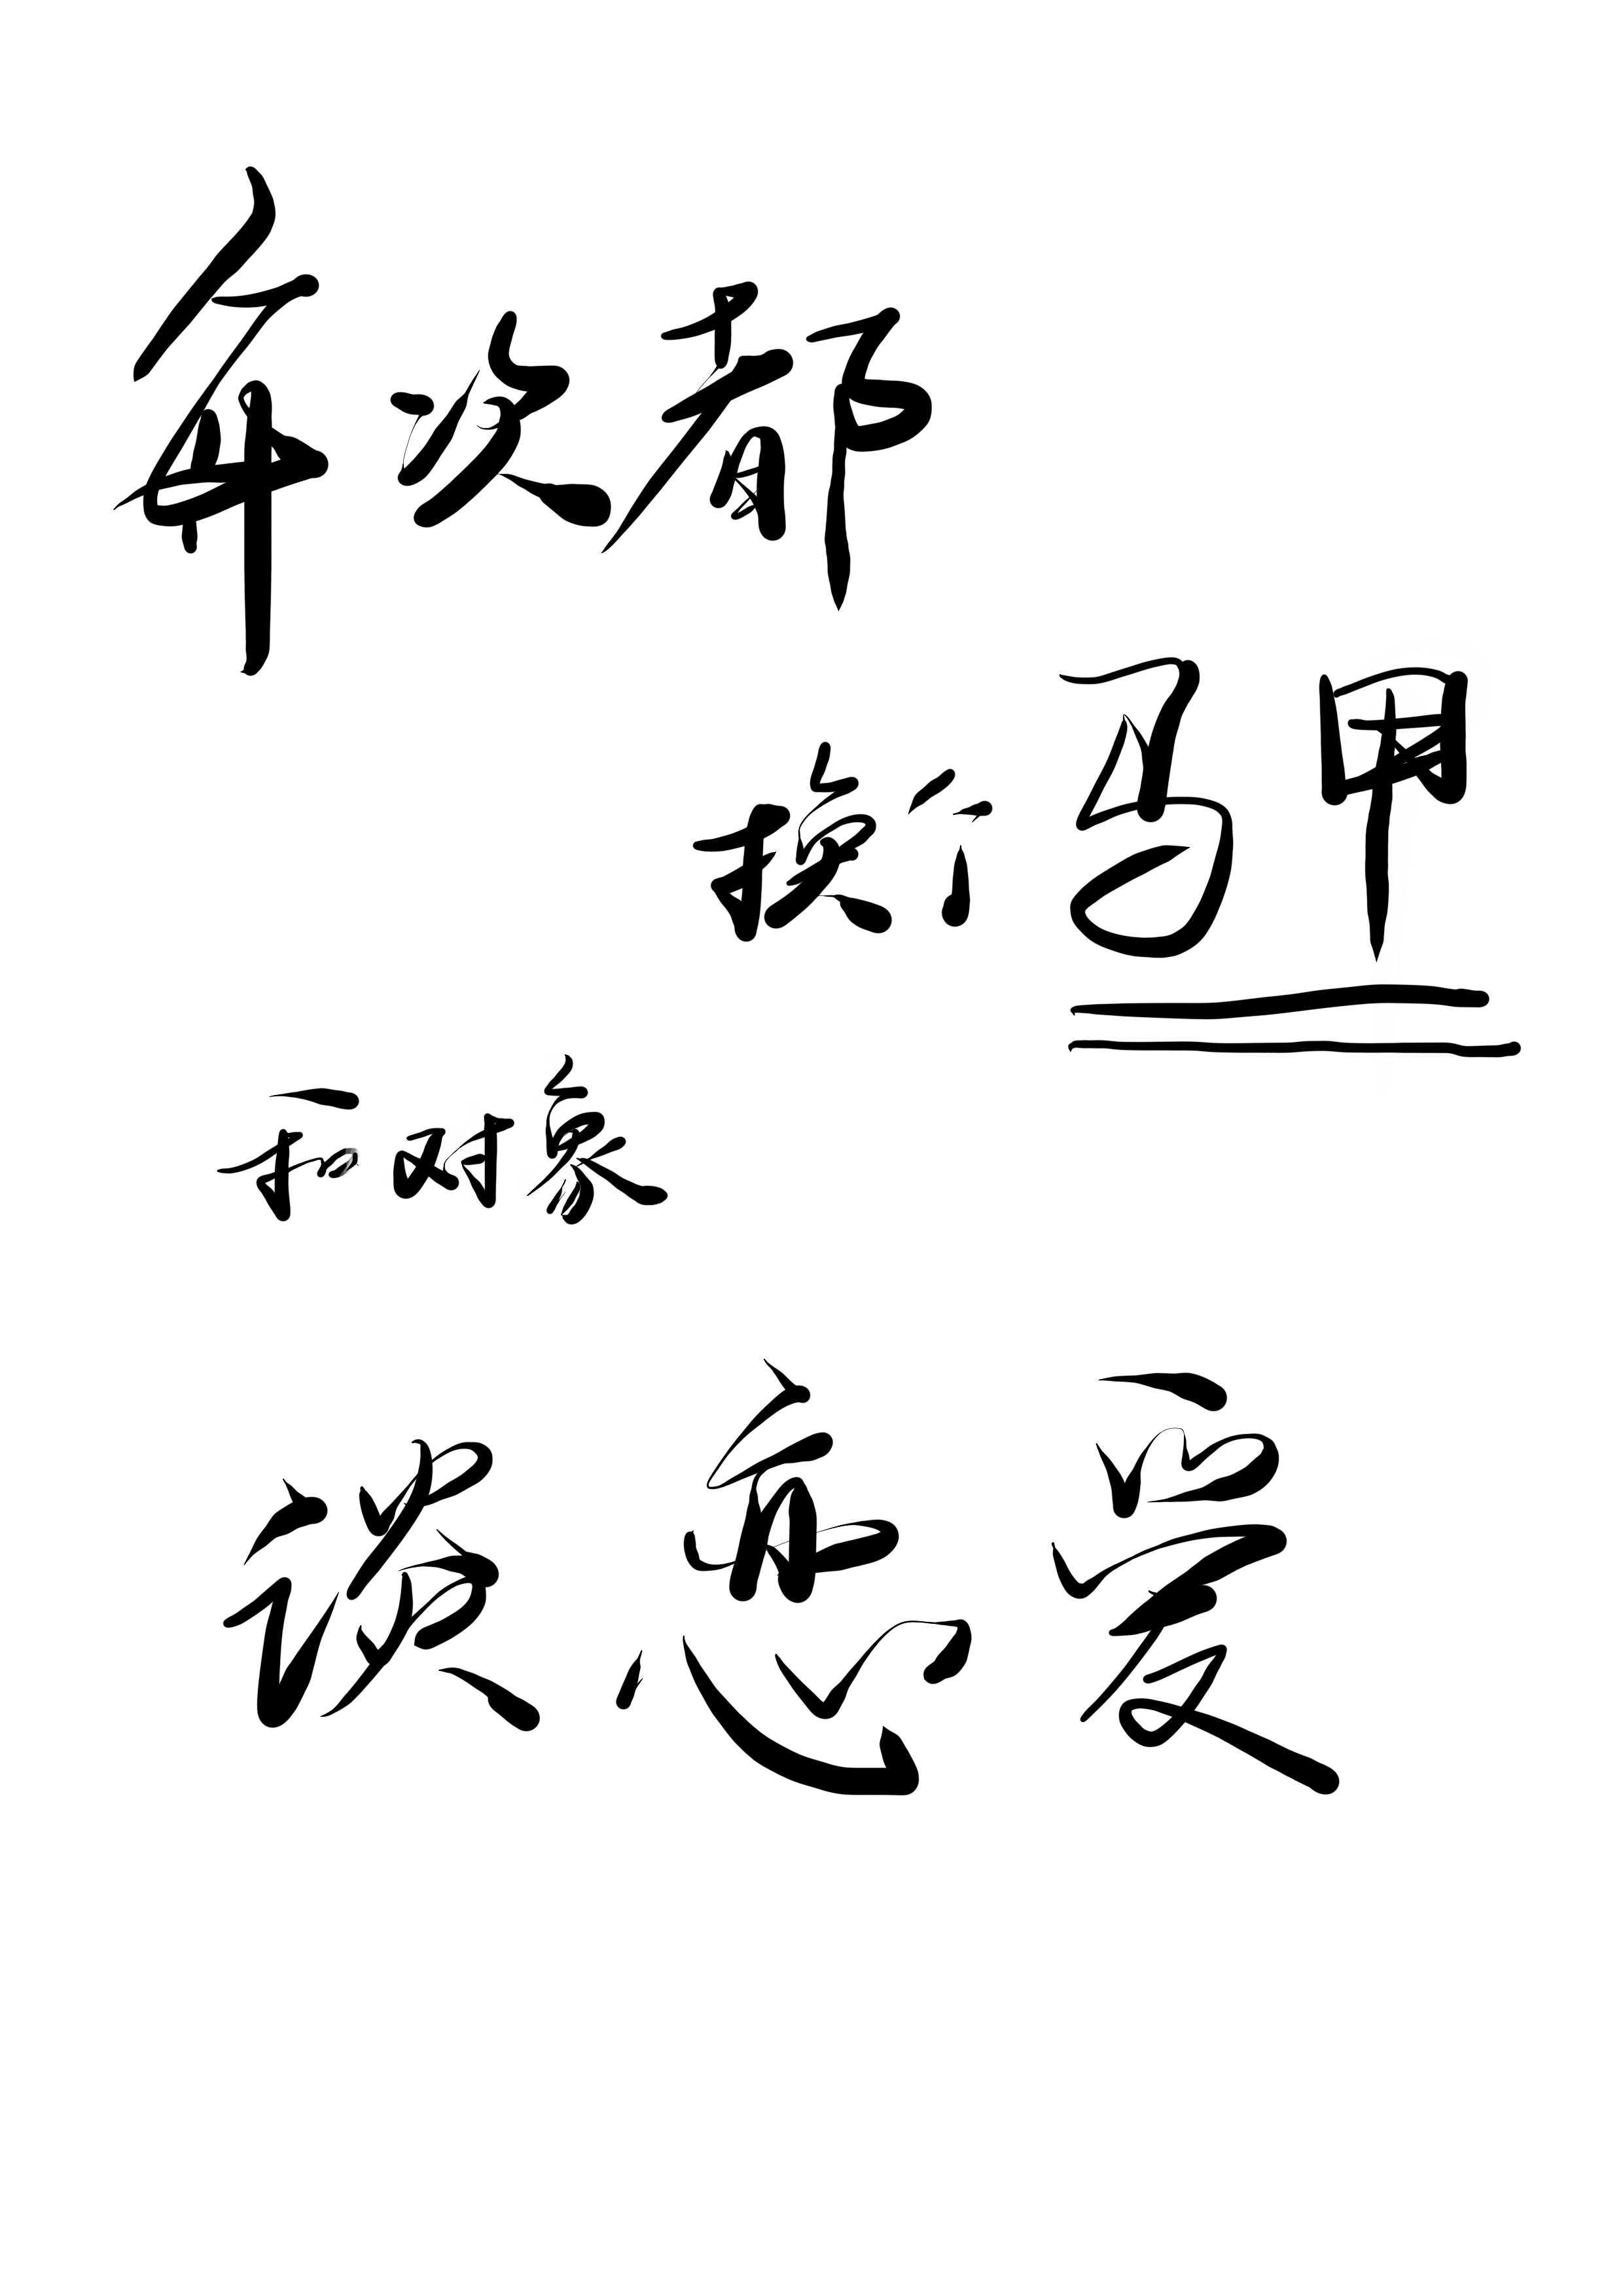 每次都
换个马甲
和对象
谈恋爱